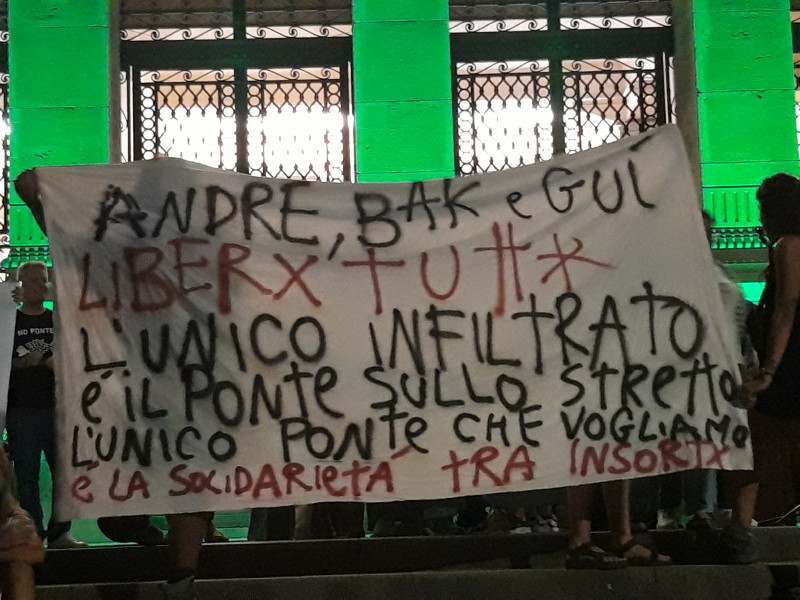 ANDRE, BAK e GUÍ
LIBERX TUTT*
L'UNICO INFILTRATO
é iL PONte SULLO StRettO
L'UNICO PONte CHE VOGLIAMO
é LA SOLIDARIETÁ TRA INSORTX
NO PONTE